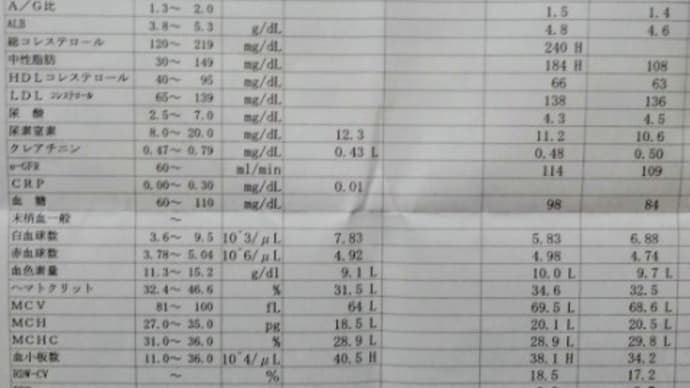 A／G比 1.3～ 2.0 1.5 1.4
ALB 3.8～ 5.3 g/dL 4.8 4.6
総コレステロール 120～ 219 mg/dL 240 H
中性脂肪 30～ 149 mg/dL 184 H 108
HDLコレステロール 40～ 95 mg/dL 66 63
LDL コレステロール 65～ 139 mg/dL 138 136
尿 酸 2.5～ 7.0 mg/dL 4.3 4.5
尿素窒素 8.0～ 20.0 mg/dL 12.3 11.2 10.6
クレアチニン 0.47～ 0.79 mg/dL 0.43 L 0.48 0.50
e-GFR 60～ ml/min 114 109
CRP 0.00～ 0.30 mg/dL 0.01
血 糖 60～ 110 mg/dL 98 84
末梢血一般 ～
白血球数 3.6～ 9.5 10^3/μL 7.83 5.83 6.88
赤血球数 3.78～ 5.04 10^6/μL 4.92 4.98 4.74
血色素量 11.3～ 15.2 g/dl 9.1 L 10.0 L 9.7 L
ヘマトクリット 32.4～ 46.6 % 31.5 L 34.6 32.5
MCV 81～ 100 fL 64 L 69.5 L 68.6 L
MCH 27.0～ 35.0 pg 18.5 L 20.1 L 20.5 L
MCHC 31.0～ 36.0 % 28.9 L 28.9 L 29.8 L
血小板数 11.0～ 36.0 10^4/μL 40.5 H 38.1 H 34.2
RDW-CV ～ % 18.5 17.2